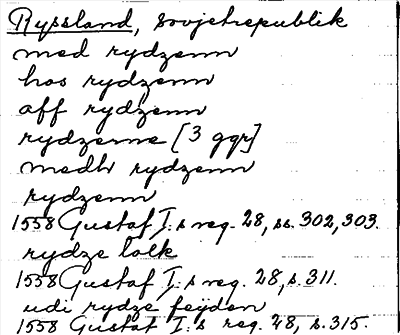 Ryssland, Sovjetrepublik
med rydzenn
hos rydzenn
aff rydzenn
rydzerne [3 ggr]
medh rydzenn
rydzenn
1558 Gustaf I:s reg. 28, ss. 302, 303.
rydze folk
1558 Gustaf I:s reg. 28, s. 311.
udi rydze fejden
1558 Gustaf I:s reg. 28, s. 315.